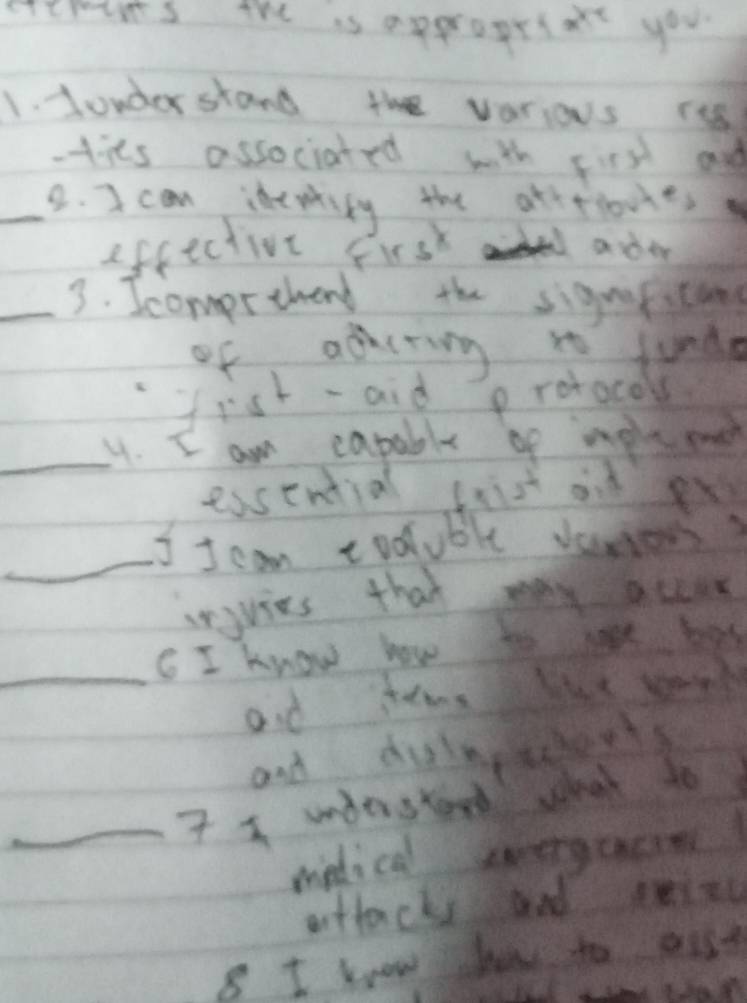 the is appropriate you.
1. I understand the various res
-ties associated with first aid
2. I can identify the attributes
effective first aider
3. I comprehend the significanc
of adhering to funda
first-aid protocols.
4. I am capable of implement
essential frist aid
I can various
injuries that may occur
6 I know how to use bas
aid items like
and disinfectants
7 I understand what to
medical emergencies
attacks and seizu
8 I know how to assi